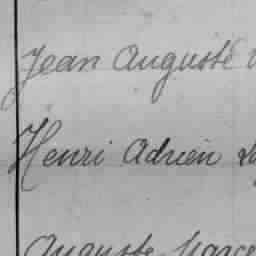 Jean Auguste
Henri Adrien
Auguste